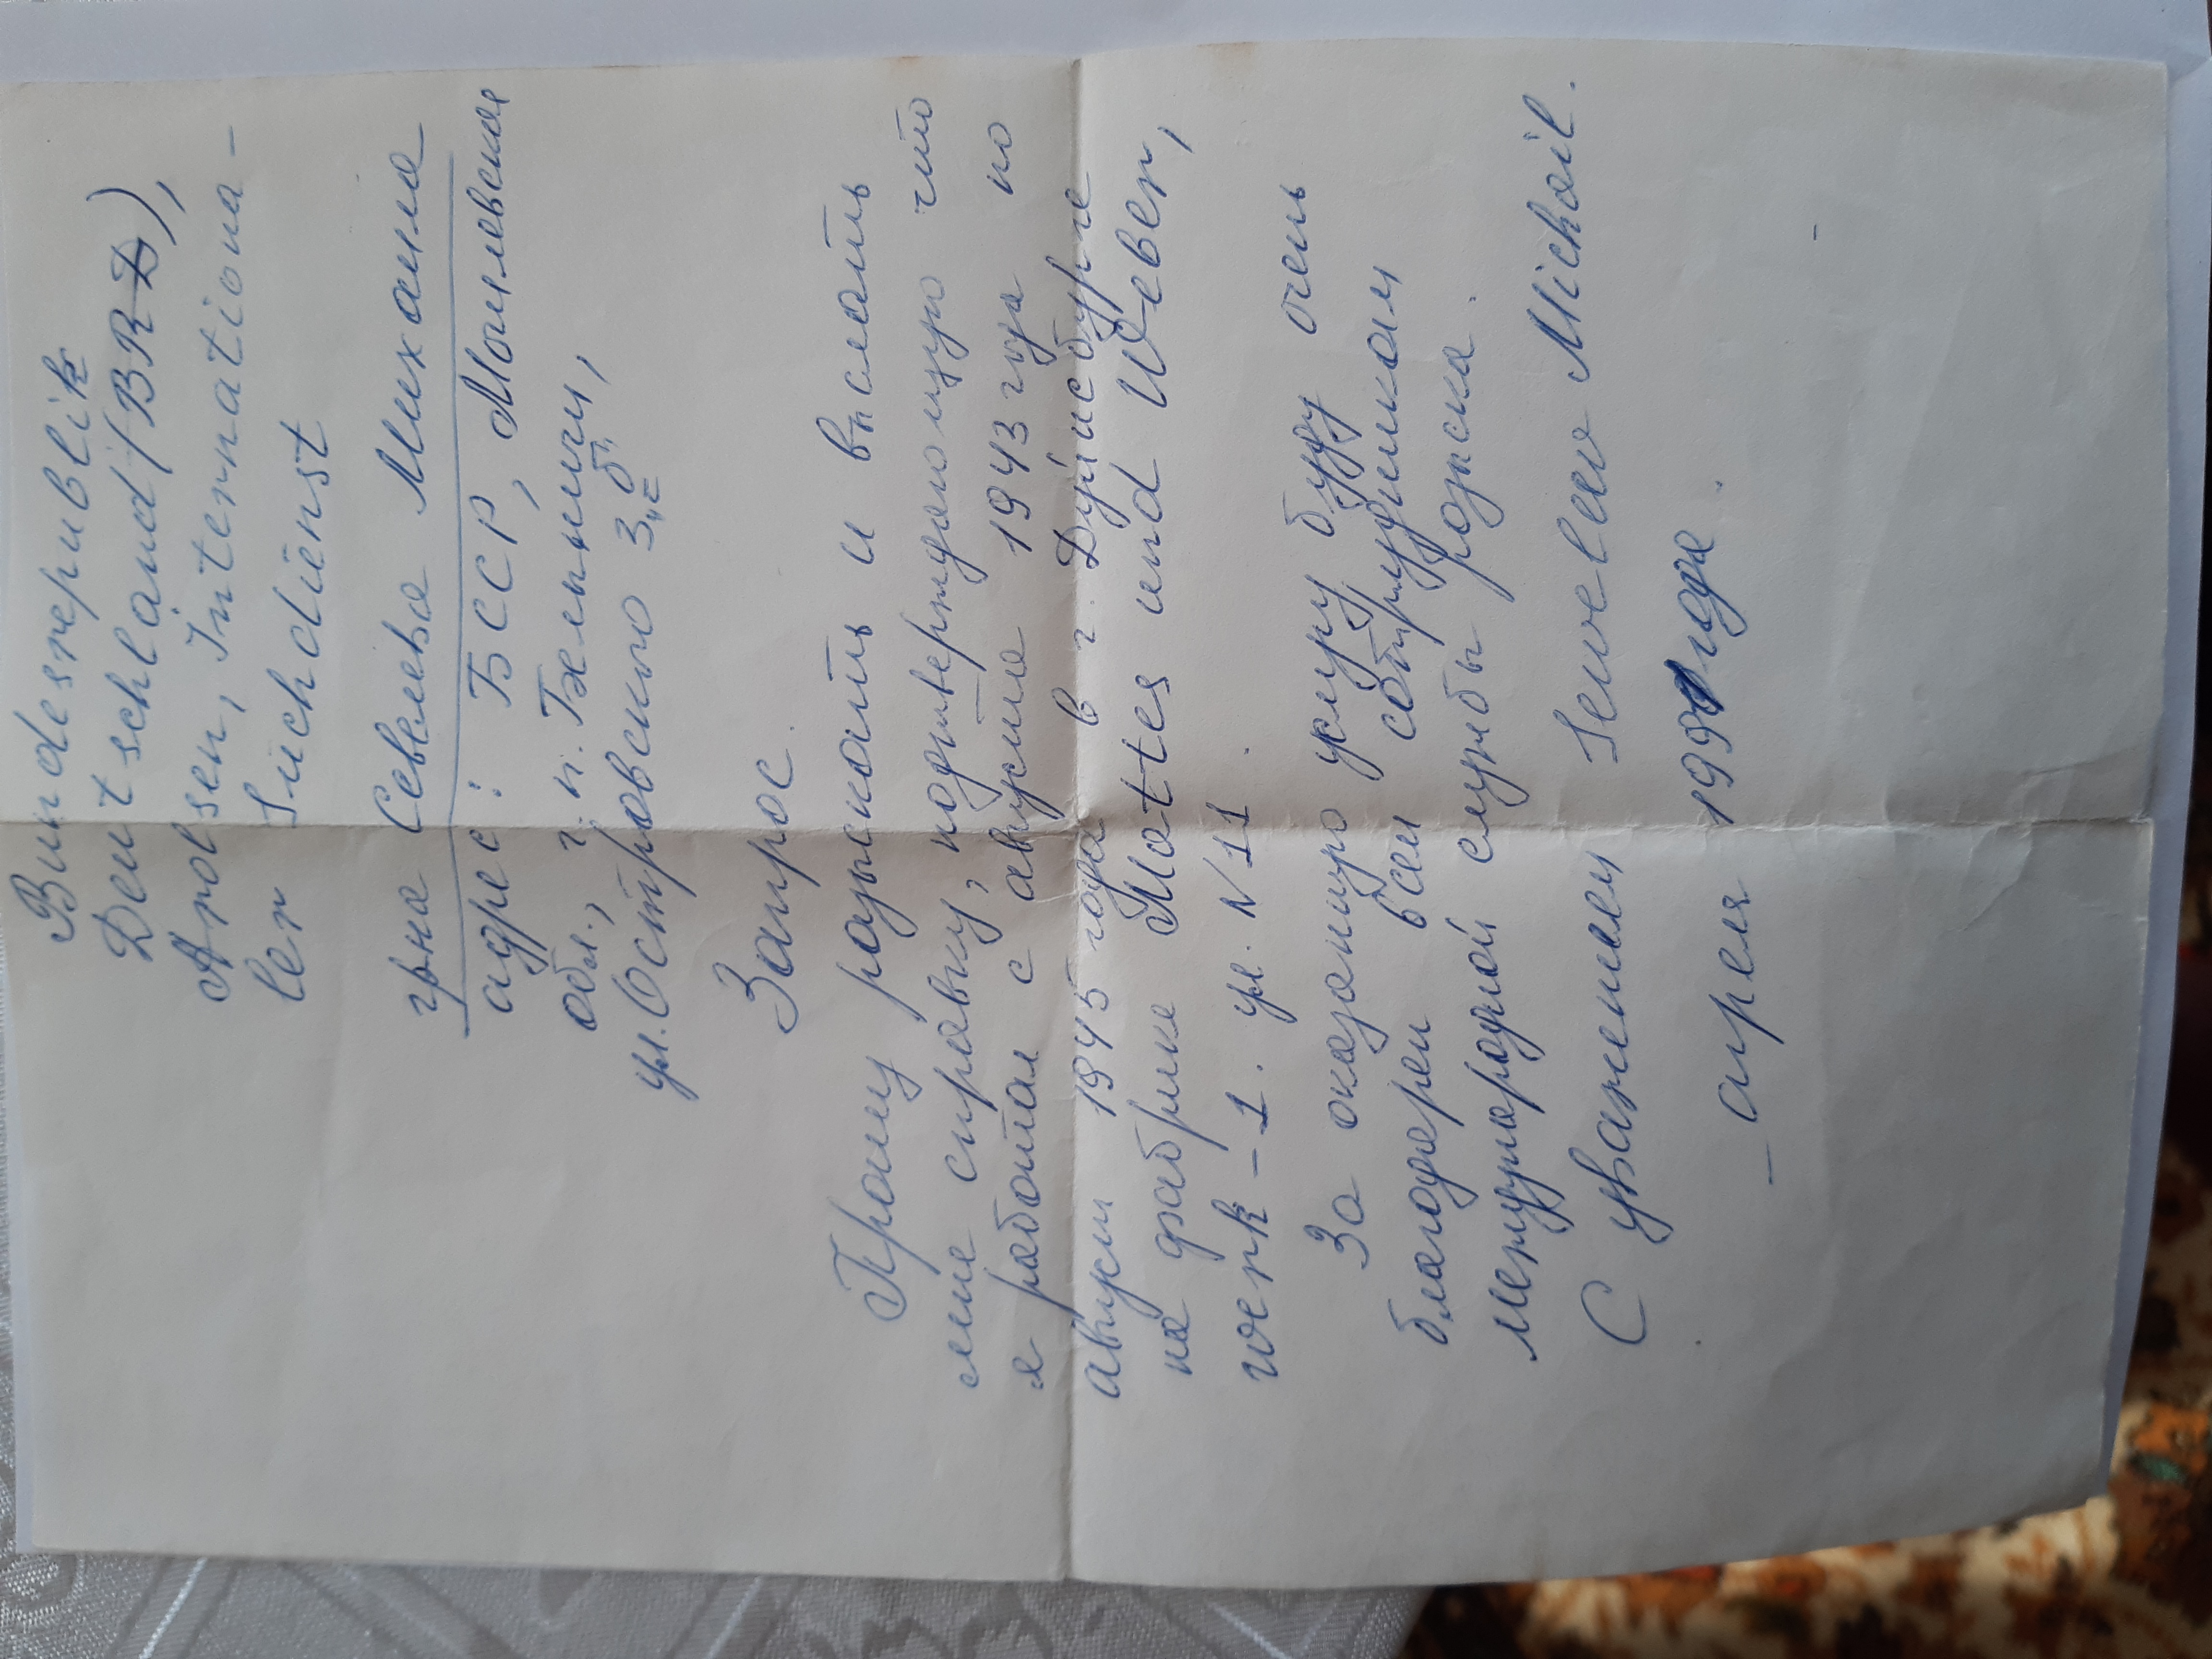 Bundesrepublik
Deutschland (BRD),
Arolsen, Internationa-
ler Suchdienst
гр-на Севельва Михаила
адрес: БССР, Могилевская
обл., г.п. Белыничи,
ул. Островского 3 "б"
Запрос
Прошу разыскать и выслать
мне справку, подтверждающую что
я работал с августа 1943 года по
август 1945 года в г. Дуйсбурге
на фабрике Mattes und Weber,
werk-1. ул. N 11
За оказанную услугу буду очень
благодарен всем сотрудникам
международной службы розыска.
С уважением Sewelew Michail.
_ апреля 1991 года.